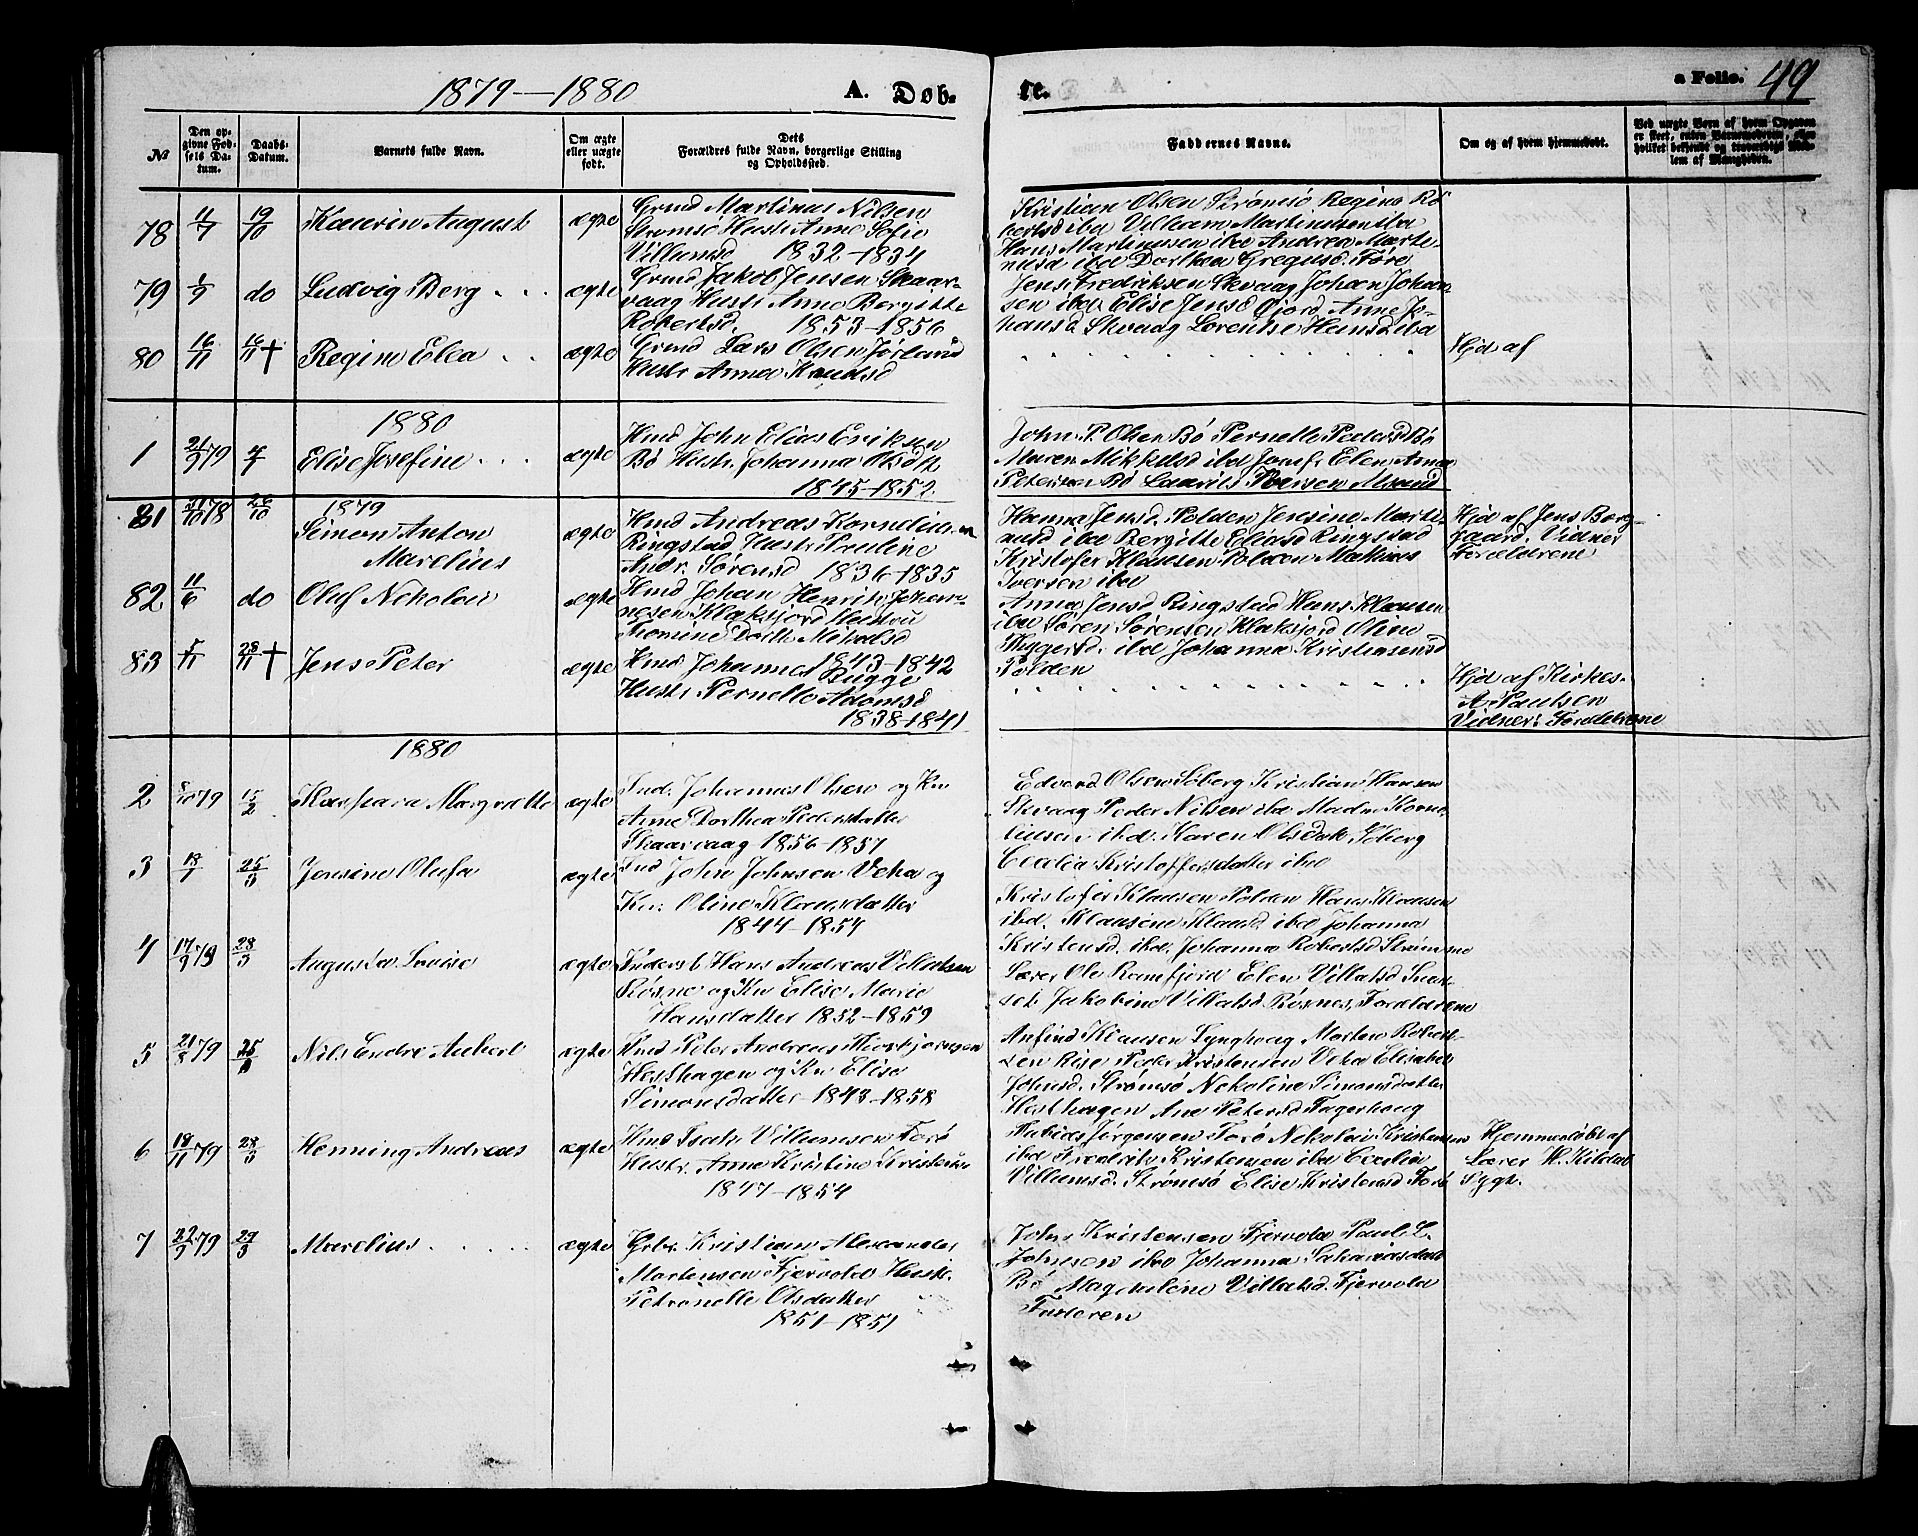 1879–1880
A. Døb-
te.
a Folio. 49
№
Den opgivne Fødsels Datum.
Daabs-Datum.
Barnets fulde Navn.
Om ægte eller uægte født.
Dets Forældres fulde Navn, borgerlige Stilling og Opholdssted.
Faddernes Navne.
Om og af hvem hjemmedøbt.
78 11/7 19/10 Kaurin August ægte
Grmd Martinus Nilsen
Strømsø Hustr Anne Sofie
Villumsd 1832–1834
Kristian Olsen Strømsø Regine Ro-
bertsd ibd Villum Martinussen ibd
Hans Martinussen ibd Andrea Marti-
nusd ibd Dorthea Gregusd. Forø
79 1/9 do Ludvig Berg ægte
Grmd Jakob Jensen Skaar-
vaag Hustr Anne Bergitte
Robertsd. 1853–1856
Jens Fredriksen Skvaag Johan Johan-
sen ibd Elise Jensd Øjord Anne Jo-
hansd Skvaag Lorentse Hansd ibd
80 16/11 16/11 † Regine Elea ægte
Grmd Lars Olsen Jørland
Hustr Anna Knudsd
Hjd af
1880
1 21/9 79 4/1 Elise Josefine ægte
Kmd John Elias Eriksen
Bø Hustr. Johanna Olsdtr
1845–1852.
John P. Olsen Bø Pernelle Pedersd Bø
Maren Mikkelsd ibd Jomfr Elen Anna
Petersen Bø Laurits
1879
81 31/10 78 26/10 Simon Anton
Marelius ægte
Kmd Andreas Korneliussen
Ringstad Hustr Pauline
Andr. Sørensd 1836–1835
Hanna Jensd. Polden Jensine Marti-
nusd ibd Bergitte Eliasd Ringstad
Kristofer Klausen Polden Mathias
Iversen ibd
Hjd af Jens Borg-
gaard. Vidner
Forældrene
82 11/6 do Oluf Nikolai ægte
Kmd Johan Henrik Johan-
nesen Klaksjord Hustru
Tomine Dorth. Mikalsd
1843–1842
Anna Jensd Ringstad Hans Klausen
ibd Søren Sørensen Klaksjord Oline
Thygersd. ibd Johanna Kristensensd
Polden
83 5/11 28/11 † Jens Peter ægte
Kmd Johannes Bugge
Hustr Pernelle Adamsd
1838–1841
Hjd af Kirkes.
A. Paulsen
Vidner: Forældrene
1880
2 5/10 79 15/2 Kaspara Margrethe ægte
Ind. Johannes Olsen og Kn
Anne Dorthea Pedersdatter
Skaarvaag 1856–1857
Edvard Olsen Søberg Kristian Hansen
Skvaag Peder Nilsen ibd Madm Korne-
liusen ibd. Karen Olsdatr Søberg
Cecelia Kristoffersdatter ibd
3 13/7 25/3 Jensine Olufa ægte
Ind John Johnsen Veha og
Kn. Oline Klausdatter
1844–1854
Kristofer Klausen Polden Hans Klausen
ibd. Klausine Klausd ibd Johanna
Kristensd. ibd. Johanna Robertsd Strømsnes
4 17/9 79 28/3 Augusta Lovise ægte
Inderst Hans Andreas Villatsen
Røsne og Kn Elise Marie
Hansdatter 1852–1859
Lærer Ole Ramfjord Elen Villatsd
Jakobine Villatsd. Røsnes, Forældrene
5 21/8 79 25/3 Nils Endre Aubert ægte
Kmd Peter Andreas Thorbjørnsen
Hesthagen og Kn Elise
Simonsdatter 1843–1858
Anfind Klausen Lynghaug Morten Robert-
sen Rise Peder Kristensen Veha Elisabet
Johnsd. Strømsø Nikoline Simonsdatter
Hesthagen Ane Petersd Fagerhaug
6 18/11 79 28/3 Henning Andreas ægte
Kmd Isak Villumsen Forø
Hustr. Anne Kristine Kristensd
1847–1854
Tobias Jørgensen Forø Nikolai Kristensen
ibd Fredrik Kristensen ibd Cecilia
Villumsd. Strømsø Elise Kristensd Forø
Hjemmedøbt af
Lærer H. Kildal
Sygt.
7 22/9 79 29/3 Marelius ægte
Grbr. Kristian Alexander
Mortensen Fjærvold Hustr.
Petronelle Olsdatter
1851–1851
John Kristensen Fjervold Paul L.
Johnsen ibd Johanna Sakariasdatt
Bø Magdalene Villatsd. Fjervold
Faderen